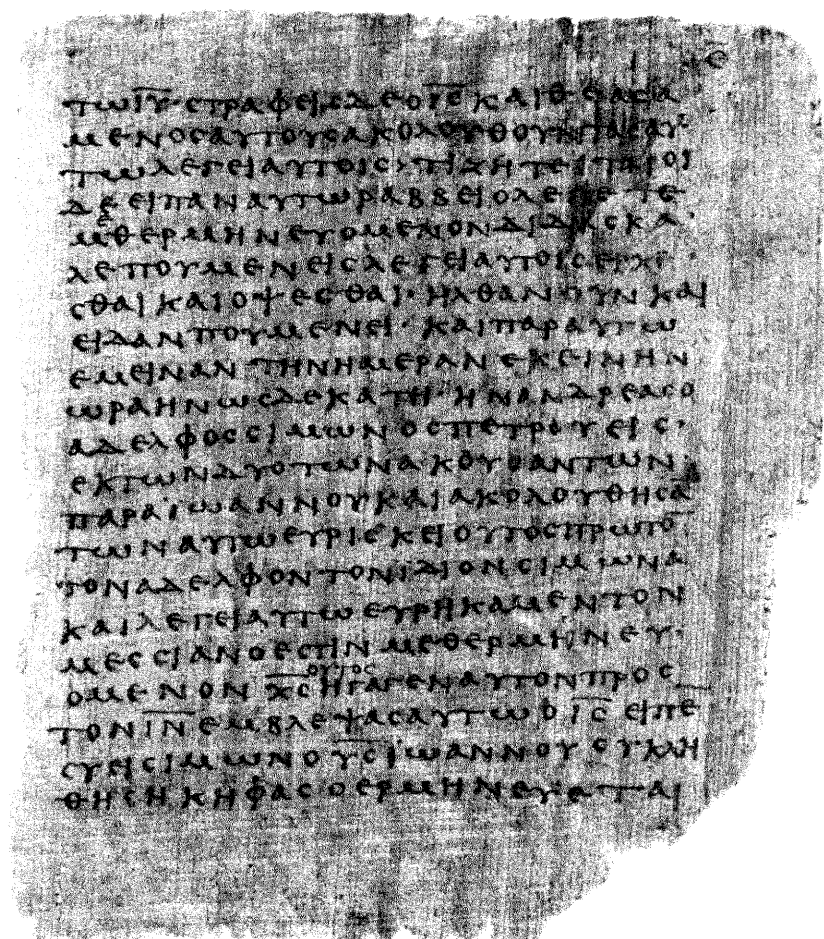 Ε
ΤΩΙ̅Υ̅·ϹΤΡΑΦΕΙϹΔΕΟΙ̅Ϲ̅ΚΑΙΘΕΑϹΑ
ΜΕΝΟϹΑΥΤΟΥϹΑΚΟΛΟΥΘΟΥΝΤΑϹΑΥ
ΤΩΛΕΓΕΙΑΥΤΟΙϹ·ΤΙΖΗΤΕΙΤΑΙΟΙ
ΔΕΕΙΠΑΝΑΥΤΩΡΑΒΒΕΙΟΛΕΓΕΤΕ
ΜΕΘΕΡΜΗΝΕΥΟΜΕΝΟΝΔΙΔΑϹΚΑ·
ΛΕΠΟΥΜΕΝΕΙϹΛΕΓΕΙΑΥΤΟΙϹΕΡΧΕ·
ϹΘΑΙΚΑΙΟΨΕϹΘΑΙ·ΗΛΘΑΝΟΥΝΚΑΙ
ΕΙΔΑΝΠΟΥΜΕΝΕΙ·ΚΑΙΠΑΡΑΥΤΩ
ΕΜΕΙΝΑΝΤΗΝΗΜΕΡΑΝΕΚΕΙΝΗΝ
ΩΡΑΗΝΩϹΔΕΚΑΤΗ·ΗΝΑΝΔΡΕΑϹΟ
ΑΔΕΛΦΟϹϹΙΜΩΝΟϹΠΕΤΡΟΥΕΙϹ·
ΕΚΤΩΝΔΥΟΤΩΝΑΚΟΥϹΑΝΤΩΝ·
ΠΑΡΑΪΩΑΝΝΟΥΚΑΙΑΚΟΛΟΥΘΗϹΑ̅
ΤΩΝΑΥΤΩΕΥΡΙϹΚΕΙΟΥΤΟϹΠΡΩΤΟ̅
ΤΟΝΑΔΕΛΦΟΝΤΟΝΙΔΙΟΝϹΙΜΩΝΑ
ΚΑΙΛΕΓΕΙΑΥΤΩΕΥΡΗΚΑΜΕΝΤΟΝ
ΜΕϹϹΙΑΝΟΕϹΤΙΝΜΕΘΕΡΜΗΝΕΥ·
ΟΥΤΟϹ
ΟΜΕΝΟΝΧ̅Ϲ̅ΗΓΑΓΕΝΑΥΤΟΝΠΡΟϹ
ΤΟΝΙ̅Ν̅ΕΜΒΛΕΨΑϹΑΥΤΩΟΙ̅Ϲ̅ΕΙΠΕ̅
ϹΥΕΙϹΙΜΩΝΟΥ̅Ϲ̅ΙΩΑΝΝΟΥϹΥΚΛΗ
ΘΗϹΗΚΗΦΑϹΟΕΡΜΗΝΕΥΕΤΑΙ